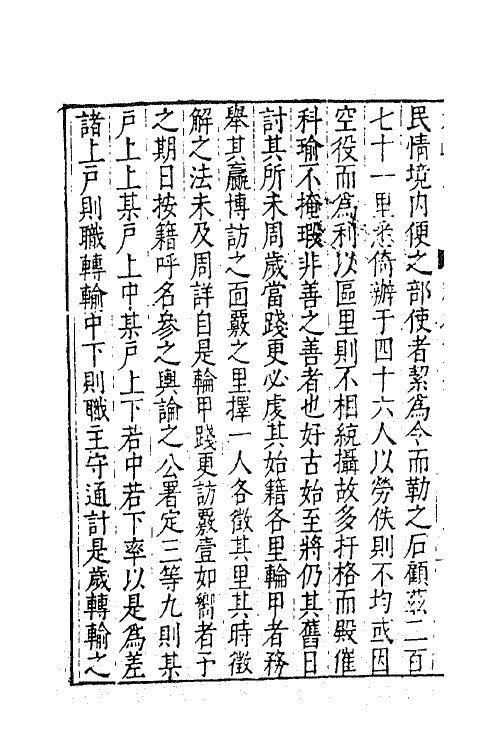 民情境内便之部使者絜爲令而勒之后顧茲二百
七十一里悉倚辦于四十六人以勞佚則不均或因
空役而爲利以區里則不相統攝故多扞格而殿催
科瑜不掩瑕非善之善者也好古始至將仍其舊日
討其所未周歲當踐更必虔其始籍各里輪甲者務
舉其羸博訪之面覈之里擇一人各徵其里其時徵
解之法未及周詳自是輪甲踐更訪覈壹如嚮者予
之期日按籍呼名參之輿論之公署定三等九則某
戶上上某戶上中某戶上下若中若下率以是爲差
諸上戶則職轉輸中下則職主守通計是歲轉輸之